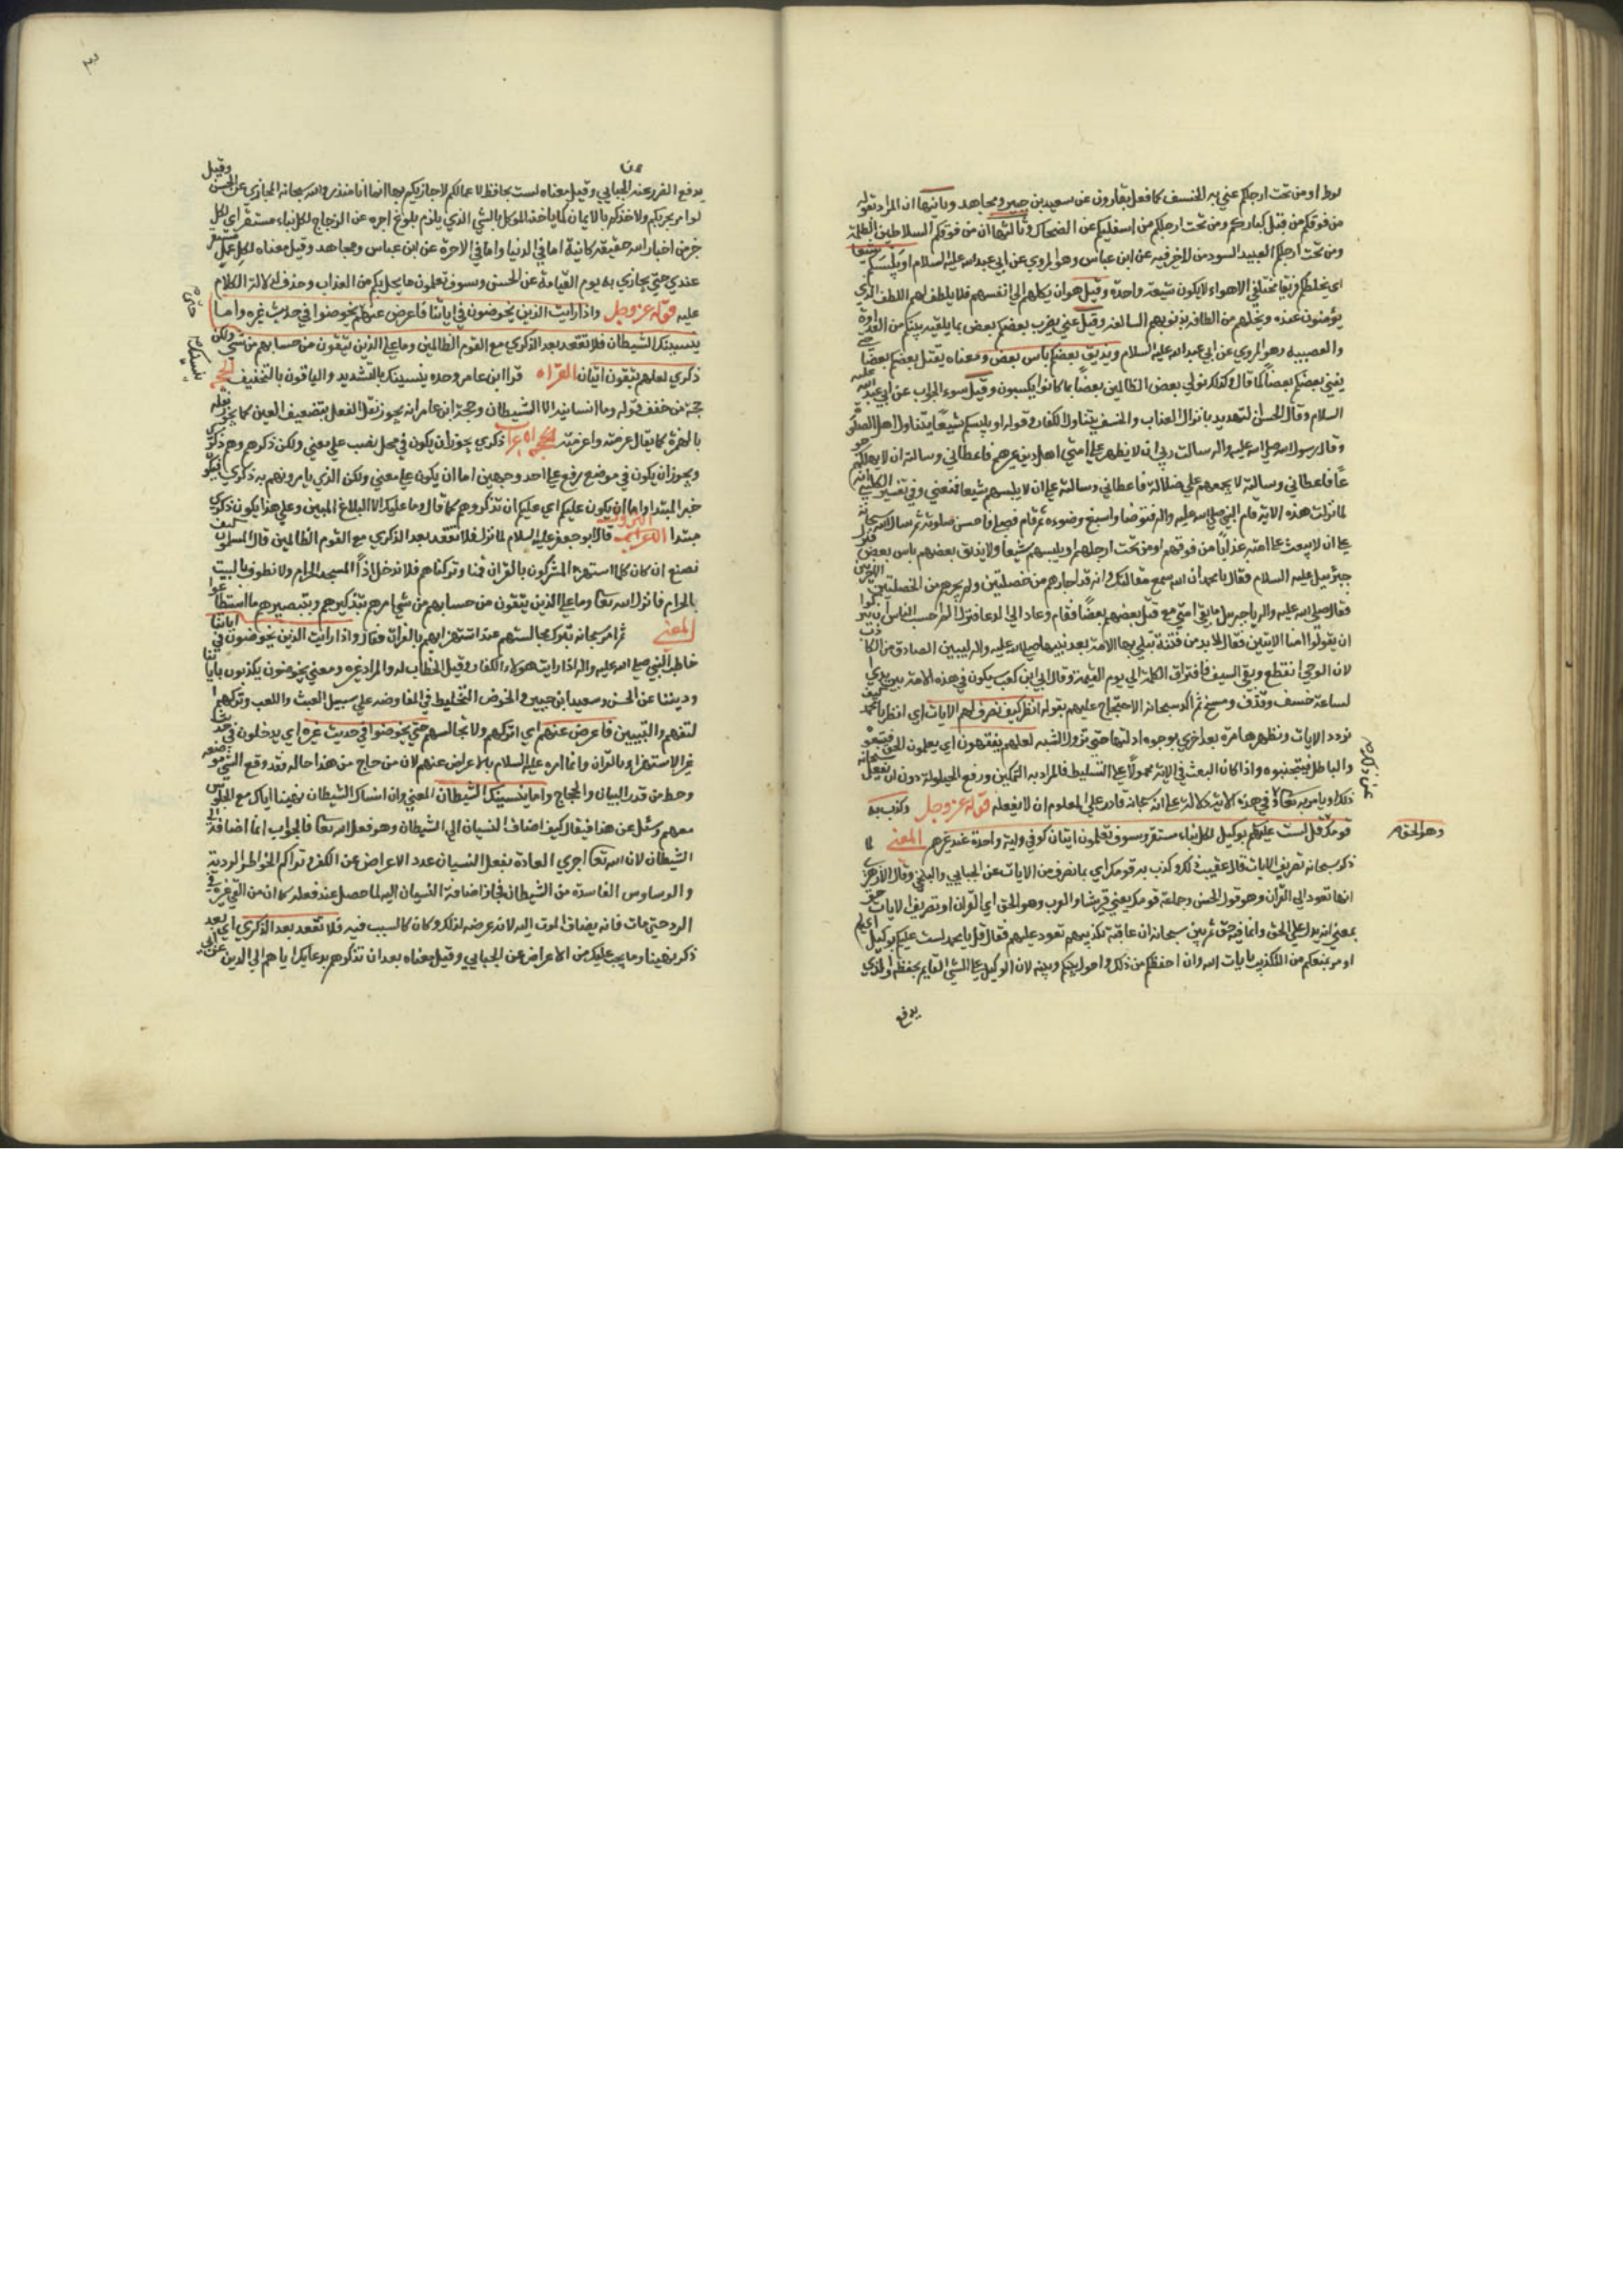 لوط او من تحت ارجلكم عني به الخسف كما فعل بقارون عن سعيد بن جبير ومجاهد وثانيها ان المراد بقوله
من فوقكم من قبل كباركم ومن تحت ارجلكم من اسفلكم عن الضحاك وثالثها ان من فوقكم السلاطين الظلمة
ومن تحت ارجلكم العبيد السوء ومن لا خير فيه عن ابن عباس وهو المروي عن ابي عبد الله عليه السلام او يلبسكم شيعا
اي يخلطكم فرقا مختلفي الاهواء لا يكون شيعة واحدة وقيل هو ان يكلهم الي انفسهم فلا يلطف لهم اللطف الذي
يؤمنون عنده ويخليهم من الطافه بذنوبهم السالفة وقيل عني به يضرب بعضكم بعض بما يلقيه بينكم من العداوة
والعصبية وهو المروي عن ابي عبد الله عليه السلام ويذيق بعضكم باس بعض ومعناه يقتل بعضكم بعضا حتي
يفني بعضكم بعضا كما قال وكذلك نولي بعض الظالمين بعضا بما كانوا يكسبون وقيل سوء الجوار عن ابي عبد الله عليه
السلام وقال الحسن التهديد بانزال العذاب والخسف يتناول الكفار وقوله او يلبسكم شيعا يتناول اهل الصلوة
وقال رسول الله صلي الله عليه واله سالت ربي ان لا يظهر علي امتي اهل دين غيرهم فاعطاني وسالته ان لا يهلكهم جوعا
فاعطاني وسالته لا يجمعهم علي ضلالة فاعطاني وسالته علي ان لا يلبسهم شيعا فمنعني وفي تفسير الكلبي انه
لما نزلت هذه الاية قام النبي صلي الله عليه واله فتوضا واسبغ وضوءه ثم قام فصلي فاحسن صلوته ثم سال الله سبحانه
علي ان لا يبعث علي امته عذابا من فوقهم او من تحت ارجلهم او يلبسهم شيعا ولا يذيق بعضهم باس بعض فنزل
جبرئيل عليه السلام فقال يا محمد ان الله سمع مقالتك وانه قد اجارهم من خصلتين ولم يجرهم من الخصلتين الاخرتين
فقال صلي الله عليه واله يا جبرئيل ما بقي امتي مع قتل بعضهم بعضا فقام وعاد الي الدعا فنزل الم احسب الناس ان يتركوا
ان يقولوا امنا الايتين فقال لا بد من فتنة تبتلي بها الامة بعد نبيها صلي الله عليه واله ليبين الصادق من الكاذب
لان الوحي انقطع وبقي السيف وافتراق الكلمة الي يوم القيمة وقال ابي ابن كعب يكون في هذه الامة بين يدي
لساعة خسف وقذف ومسخ ثم اكد سبحانه الاحتجاج عليهم بقوله انظر كيف نصرف لهم الايات اي انظر يا محمد كيف
نردد الايات ونظهرها مرة بعد اخري بوجوه ادلتها حتي تزول الشبه لعلهم يفقهون اي يعلمون الحق فيتبعوه
والباطل فيتجنبوه واذا كان البعث في الاية محمولا علي التسليط فالمراد به التمكين ورفع الحيلولة دون ان يفعل سبحانه
ذلك او يامر به تعا وفي هذه الاية دلالة علي انه سبحانه قادر علي المعلوم ان لا يفعله قوله عز وجل وكذب به
وهو الحق
قومك قل لست عليكم بوكيل لكل نباء مستقر وسوف تعلمون ايتان كوفي واية واحدة عند غيرهم المعني لما
ذكر سبحانه تصريف الايات قال عقيب ذلك وكذب به قومك اي بما نصرف من الايات عن الجبايي والبلخي وقال الازهري
انها تعود الي القران وهو قول الحسن وجماعة قومك يعني قريشا والعرب وهو الحق اي القران او تصريف الايات حق
بمعني انه يدل علي الحق وانما فيه حق ثم بين سبحانه ان عاقبة تكذيبهم تعود عليهم فقال قل يا محمد لست عليكم بوكيل
او مر بمنعكم من التكذيب بايات الله وان احفظكم من ذلك واحول بينكم وبينه لان الوكيل علي الشي القايم بحفظه والذي
يدفع
يدفع الضرر عنه عن الجبايي وقيل معناه لست بحافظ لاعمالكم لاجازيكم بها انما انا منذر والله سبحانه المجازي عن الحسن وقيل
لم اومر بحربكم ولا اخذكم بالايمان كما ياخذ الموكل بالشي الذي يلزم بلوغ اخره عن الزجاج لكل نباء مستقر اي لكل
خبر من اخبار الله حقيقة كائنة اما في الدنيا واما في الاخرة عن ابن عباس ومجاهد وقيل معناه لكل عمل مستقر
عندي حتي يجازي به يوم القيامة عن الحسن وسوف تعلمون ما يحل بكم من العذاب وحذف لدلالة الكلام
عليه قوله عز وجل واذا رايت الذين يخوضون في اياتنا فاعرض عنهم يخوضوا في حديث غيره واما
حتي
ينسينك الشيطان فلا تقعد بعد الذكري مع القوم الظالمين وما علي الذين يتقون من حسابهم من شي ولكن
ذكري لعلهم يتقون ايتان القراه قرا ابن عامر وحده ينسينك بالتشديد والباقون بالتخفيف الحجه
حجة من خفف قوله وما انسانيه الا الشيطان وحجة ابن عامر انه يجوز نقل الفعل بتضعيف العين كما يجوز نقله
بالهمزة كما يقال غرمته واغرمته الاعراب ذكري يجوز ان يكون في محل نصب علي معني ولكن ذكروهم ذكري
ويجوز ان يكون في موضع رفع علي احد وجهين اما ان يكون علي معني ولكن الذي يامرونهم به ذكري فيكون
خبر المبتدا واما ان يكون عليكم اي عليكم ان تذكروهم كما قال وما عليك الا البلاغ المبين وعلي هذا يكون ذكري
مبتدا النزول قال ابو جعفر عليه السلام لما نزل فلا تقعد بعد الذكري مع القوم الظالمين قال المسلمون كيف
نصنع ان كان كلما استهزا المشركون بالقران قمنا وتركناهم فلا ندخل اذا المسجد الحرام ولا نطوف بالبيت
بالحرام فانزل الله تعا وما علي الذين يتقون من حسابهم من شي امرهم بتذكيرهم وتبصيرهم ما استطاعوا
المعني ثم امر سبحانه بترك مجالستهم عند استهزائهم بالقران فقال واذا رايت الذين يخوضون في اياتنا
خاطب النبي صلي الله عليه واله اذا رايت هؤلاء الكفار وقيل الخطاب له والمراد غيره ومعني يخوضون يكذبون باياتنا
وديننا عن الحسن وسعيد ابن جبير والخوض التخليط في المفاوضة علي سبيل العبث واللعب وتركهم
لتفهم والتبيين فاعرض عنهم اي اتركهم ولا تجالسهم حتي يخوضوا في حديث غيره اي يدخلون في حديث
غير الاستهزاء بالقران وانما امره عليه السلام بالاعراض عنهم لان من حاج من هذا حاله فقد وقع الشي موضعه
وحط من قدر البيان والحجاج واما ينسينك الشيطان المعني وان انساك الشيطان نهينا اياك مع الجلوس
معهم وسئل عن هذا فيقال كيف اضاف النسيان الي الشيطان وهو فعل الله تعا فالجواب انما اضافه الي
الشيطان لان الله تعا اجري العادة بفعل النسيان عند الاعراض عن الفكر وتراكم الخواطر الردية
والوساوس الفاسدة من الشيطان فجاز اضافة النسيان اليه لما حصل عند فعله كما ان من القي غيره في
البرد حتي مات فانه يضاف الموت اليه لانه عرضه لذلك وكان كالسبب فيه فلا تقعد بعد الذكري اي بعد
ذكر نهينا وما يجب عليك من الاعراض عن الجبايي وقيل معناه بعد ان تذكرهم بدعايك اياهم الي الدين عن ابي